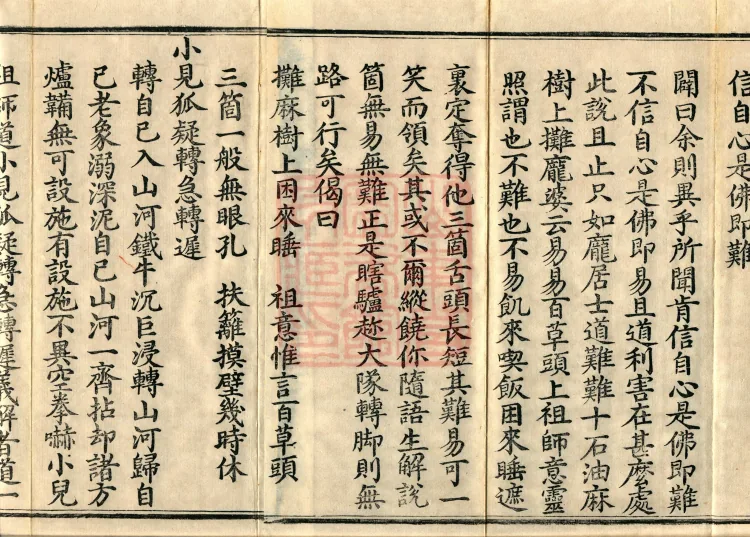 信自心是佛即難
闢曰余則異乎所聞肯信自心是佛即難
不信自心是佛即易且道利害在甚麽處
此說且止只如龐居士道難難十石油麻
樹上攤龐婆云易易百草頭上祖師意靈
照謂也不難也不易飢來喫飯困來睡遮
裏定奪得他三箇舌頭長短其難易可一
笑而領矣其或不爾縱饒你隨語生解說
箇無易無難正是瞎驢趂大隊轉脚則無
路可行矣偈曰
攤麻樹上困來睡 祖意惟言百草頭
三箇一般無眼孔 扶籬摸壁幾時休
小見狐疑轉急轉遲
轉自己入山河鐵牛沉巨浸轉山河歸自
己老象溺深泥自己山河一齊拈却諸方
爐鞴無可設施有設施不異空拳嚇小兒
祖師道小見狐疑轉急轉遲義解者道一